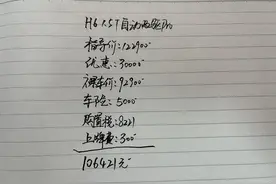 H6 1.5T自动
指导价:122900
优惠:30000
裸车价:92900
车险:5000
购置税:8221
上牌费:300
106421元